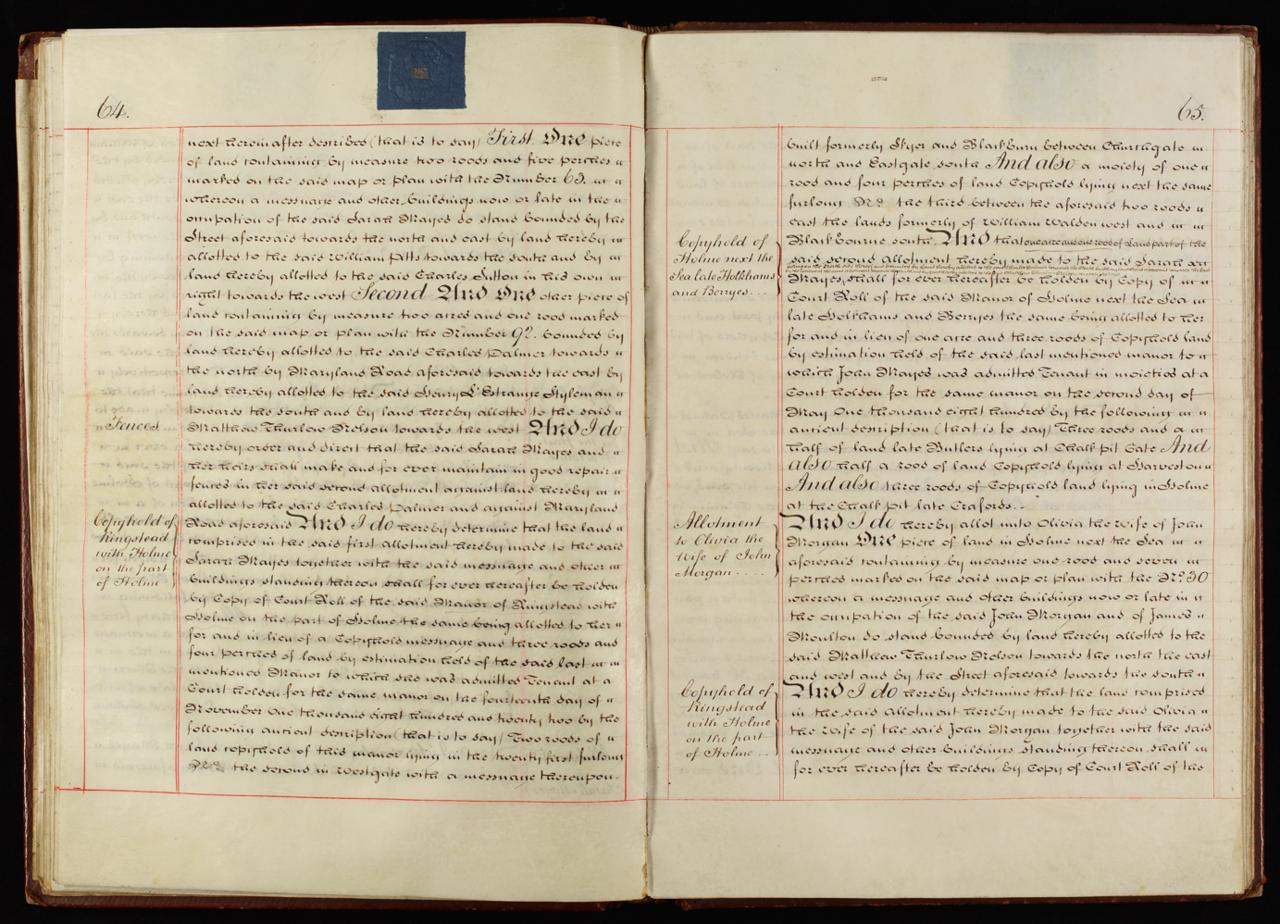 64.
next hereinafter described (that is to say) First One piece
of land containing by measure two roods and five perches
marked on the said map or plan with the Number 63. in
whereon a messuage and other buildings now or late in the
occupation of the said Sarah Mayes do stand bounded by the
Street aforesaid towards the north and east by land hereby
allotted to the said William Pitts towards the south and by
land hereby allotted to the said Charles Sutton in his own
right towards the west Second And One other piece of
land containing by measure two acres and one rood marked
on the said map or plan with the Number 92. bounded by
land hereby allotted to the said Charles Palmer towards
the north by Maryland Road aforesaid towards the east by
land hereby allotted to the said Henry L'Estrange Styleman
towards the south and by land hereby allotted to the said
Fences
Matthew Thurlow Nelson towards the west And I do
hereby order and direct that the said Sarah Mayes and
her heirs shall make and for ever maintain in good repair
fences in her said second allotment against land hereby
allotted to the said Charles Palmer and against Maryland
Copyhold of
Ringstead
with Holme
on the part
of Holme
Road aforesaid And I do hereby determine that the land
comprised in the said first allotment hereby made to the said
Sarah Mayes together with the said messuage and other
buildings standing thereon shall for ever hereafter be holden
by Copy of Court Roll of the said Manor of Ringstead with
Holme on the part of Holme the same being allotted to her
for and in lieu of a Copyhold messuage and three roods and
four perches of land by estimation held of the said last
mentioned Manor to which she was admitted Tenant at a
Court holden for the same manor on the fourteenth day of
November One thousand eight hundred and twenty two by the
following antient description (that is to say) Two roods of
land copyhold of this manor lying in the twenty first furlong
No. the second in Westgate with a messuage thereupon.
65.
built formerly Skyer and Blackburn between Churchgate
north and Eastgate south And also a moiety of one
rood and four perches of land Copyhold lying next the same
furlong No. the third between the aforesaid two roods
east the lands formerly of William Walden west and
Copyhold of
Holme next the
Sea late Holkhams
and Berryes
Blackbourne south And that one acre and one rood of land part of the
said second allotment hereby made to the said Sarah
Mayes, shall for ever hereafter be holden by Copy of
Court Roll of the said Manor of Holme next the Sea
late Holkhams and Berryes the same being allotted to her
for and in lieu of one acre and three roods of Copyhold land
by estimation held of the said last mentioned manor to
which John Mayes was admitted Tenant in moieties at a
Court holden for the same manor on the second day of
May One thousand eight hundred by the following
antient description (that is to say) Three roods and a
half of land late Butlers lying at Chalk pit Gate And
also half a rood of land Copyhold lying at Harveston
And also three roods of Copyhold land lying in Holme
at the Chalk Pit late Crafords
Allotment
to Olivia the
Wife of John
Morgan
And I do hereby allot unto Olivia the wife of John
Morgan One piece of land in Holme next the Sea
aforesaid containing by measure one rood and seven
perches marked on the said map or plan with the No. 50
whereon a messuage and other buildings now or late in
the occupation of the said John Morgan and of James
Moulton do stand bounded by land hereby allotted to the
said Matthew Thurlow Nelson towards the north the east
and west and by the Street aforesaid towards the south
Copyhold of
Ringstead
with Holme
on the part
of Holme
And I do hereby determine that the land comprised
in the said Allotment hereby made to the said Olivia
the Wife of the said John Morgan together with the said
messuage and other buildings standing thereon shall
for ever hereafter be holden by Copy of Court Roll of the